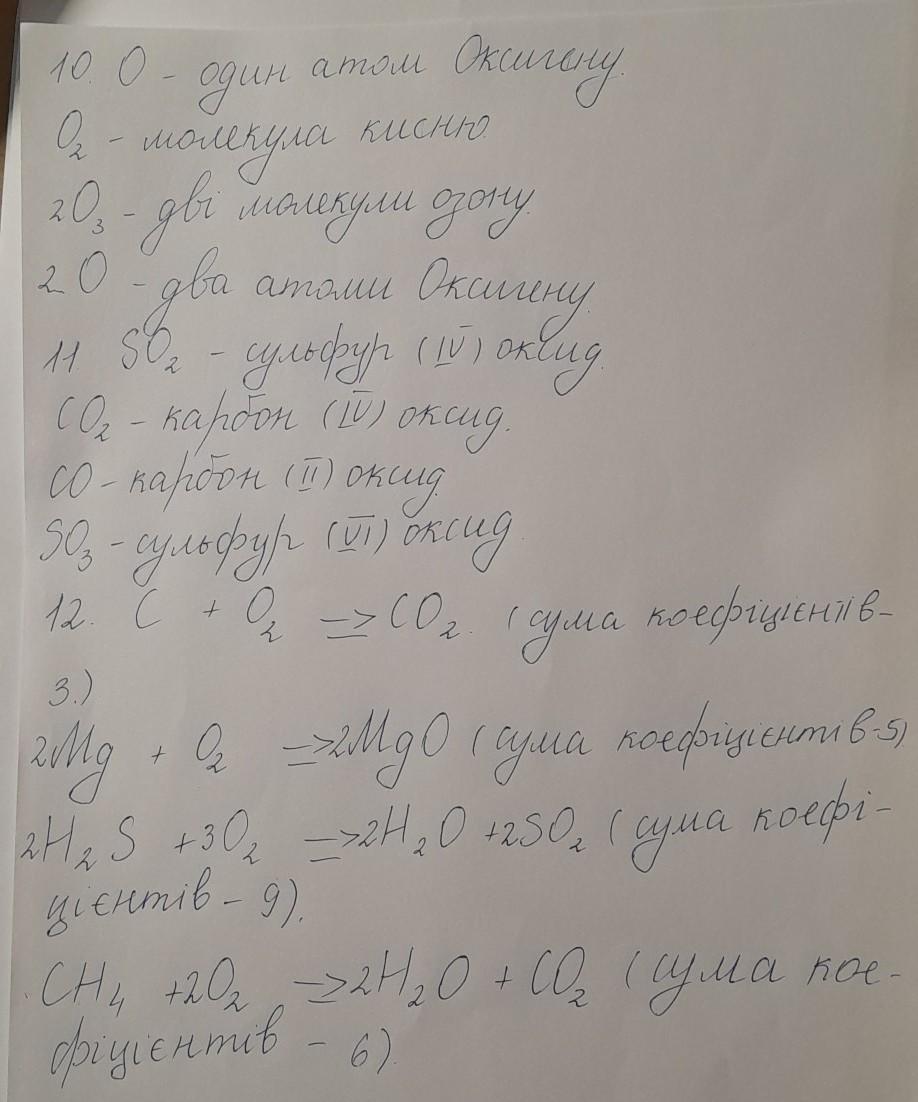 10. O - один атом Оксигену.
O₂ - молекула кисню.
2O₃ - дві молекули озону.
2 O - два атоми Оксигену.
11 SO₂ - сульфур (IV) оксид.
CO₂ - карбон (IV) оксид.
CO - карбон (II) оксид.
SO₃ - сульфур (VI) оксид.
12. C + O₂ => CO₂. (сума коефіцієнтів-
3.)
2Mg + O₂ => 2MgO (сума коефіцієнтів-5)
2H₂S + 3O₂ => 2H₂O + 2SO₂ (сума коефі-
цієнтів - 9).
CH₄ + 2O₂ => 2H₂O + CO₂ (сума кое-
фіцієнтів - 6).